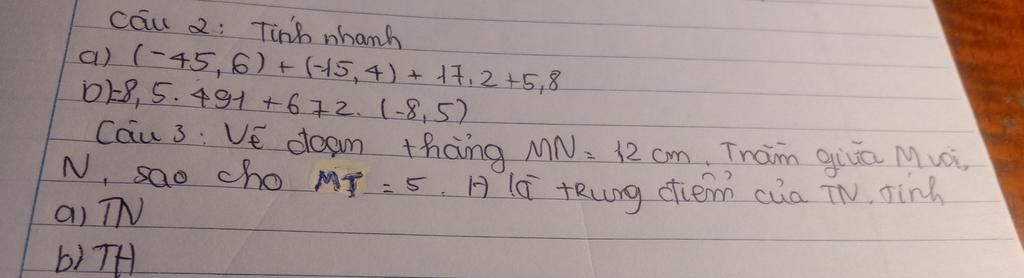 Câu 2: Tính nhanh
a) (-45,6) + (-15,4) + 17,2 + 5,8
b) -8,5. 491 + 672. (-8,5)
Câu 3: Vẽ đoạn thẳng MN = 12 cm, T nằm giữa M và
N, sao cho MT = 5. H là trung điểm của TN. Tính
a) TN
b) TH